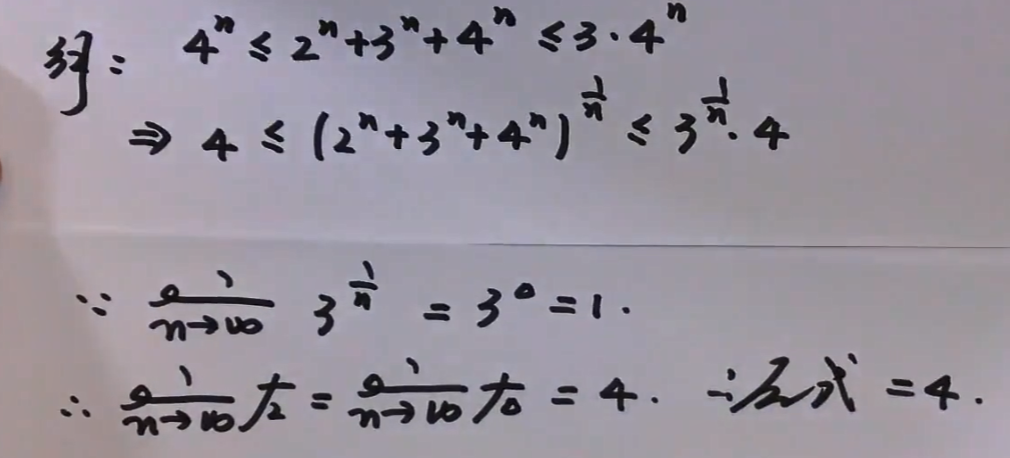 解: 4ⁿ ≤ 2ⁿ+3ⁿ+4ⁿ ≤ 3·4ⁿ
⇒ 4 ≤ (2ⁿ+3ⁿ+4ⁿ)^(1/n) ≤ 3^(1/n)·4
∵ lim n→∞ 3^(1/n) = 3⁰ = 1.
∴ lim n→∞ 左 = lim n→∞ 右 = 4. ∴ 原式 = 4.